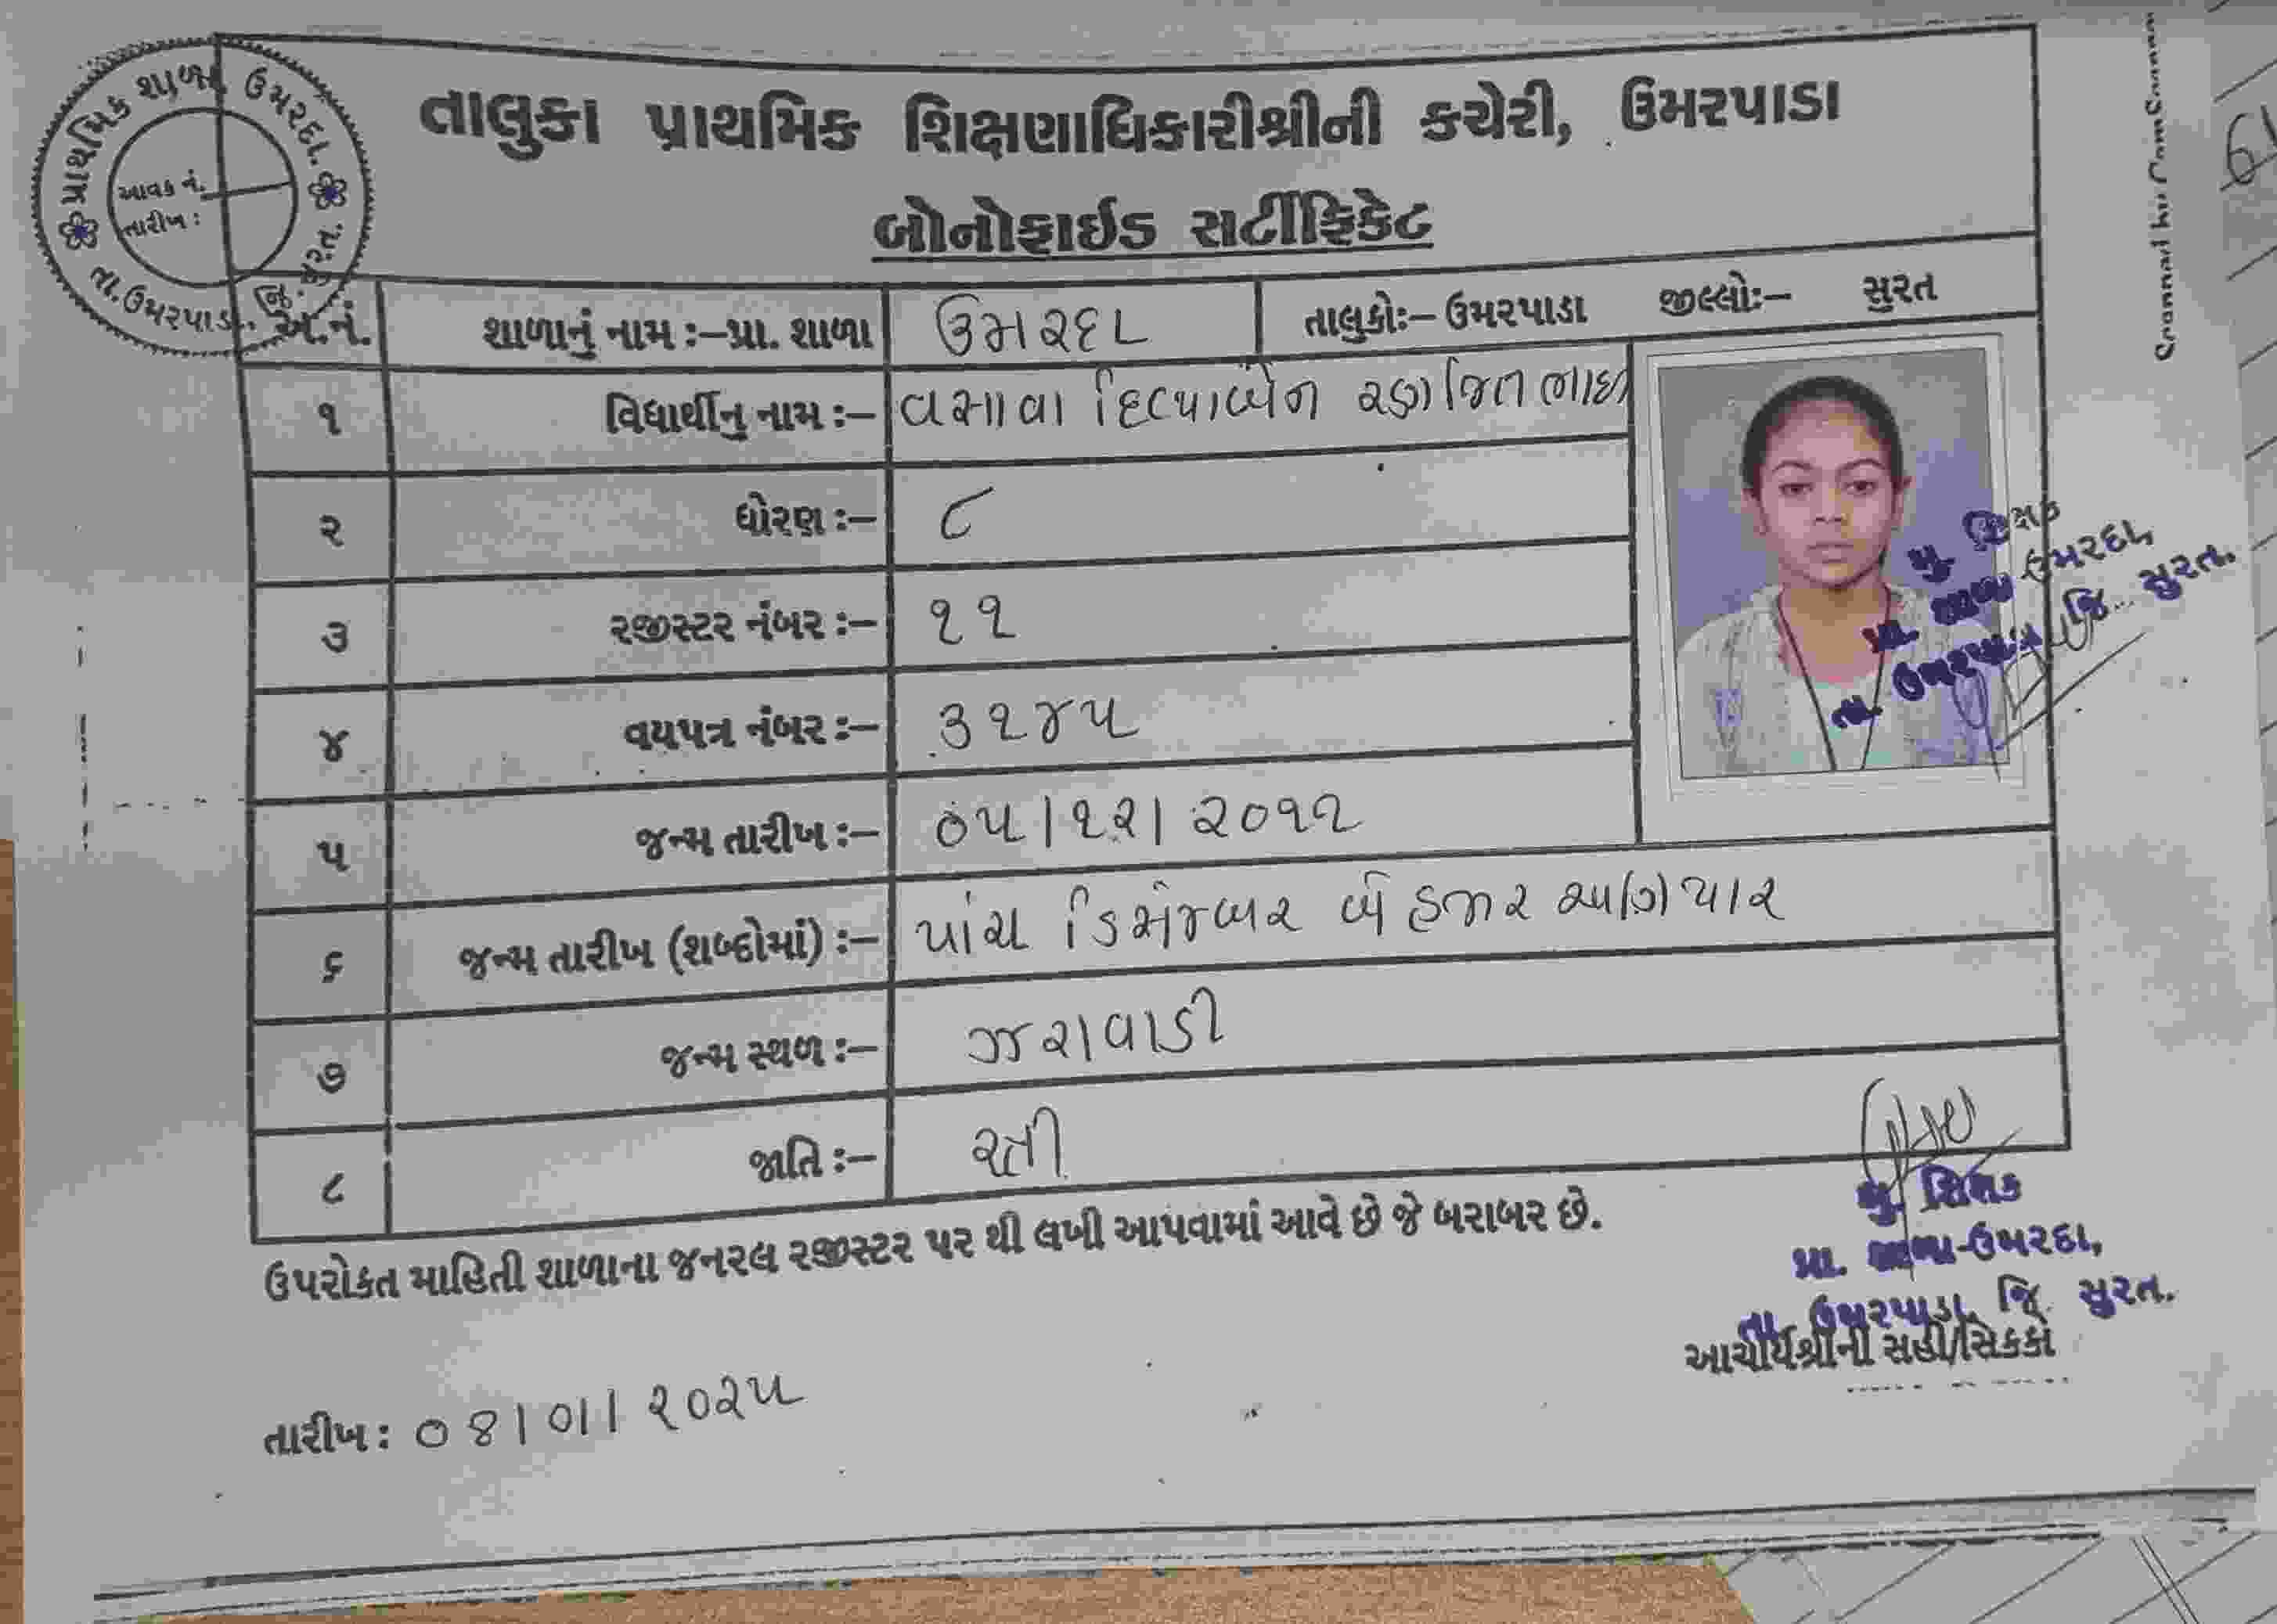 પ્રાથમિક શાળા ઉમરદા.
તા. ઉમરપાડા. જિ. સુરત.
આવક નં.
તારીખ :
તાલુકા પ્રાથમિક શિક્ષણાધિકારીશ્રીની કચેરી, ઉમરપાડા
બોનોફાઈડ સર્ટીફિકેટ
અ.નં. શાળાનું નામ :–પ્રા. શાળા ઉમરદા તાલુકોઃ– ઉમરપાડા જીલ્લોઃ– સુરત
૧ વિદ્યાર્થીનુ નામ :– વસાવા દિવ્યાબેન રણજિતભાઈ
૨ ધોરણ :– ૮
૩ રજીસ્ટર નંબર :– ૧૧
૪ વયપત્ર નંબર :– ૩૧૪૫
૫ જન્મ તારીખ :– ૦૫/૧૨/૨૦૧૧
૬ જન્મ તારીખ (શબ્દોમાં) :– પાંચ ડિસેમ્બર બે હજાર અગિયાર
૭ જન્મ સ્થળ :– ઝરાવાડી
૮ જાતિ :– સ્ત્રી
મુ. શિક્ષક
પ્રા. શાળા-ઉમરદા,
તા. ઉમરપાડા, જિ. સુરત.
ઉપરોકત માહિતી શાળાના જનરલ રજીસ્ટર પર થી લખી આપવામાં આવે છે જે બરાબર છે.
મુ. શિક્ષક
પ્રા. શાળા-ઉમરદા,
તા. ઉમરપાડા, જિ. સુરત.
આચાર્યશ્રીની સહી/સિકકો
તારીખ : 08/01/૨૦૨૫
Scanned by CamScanner